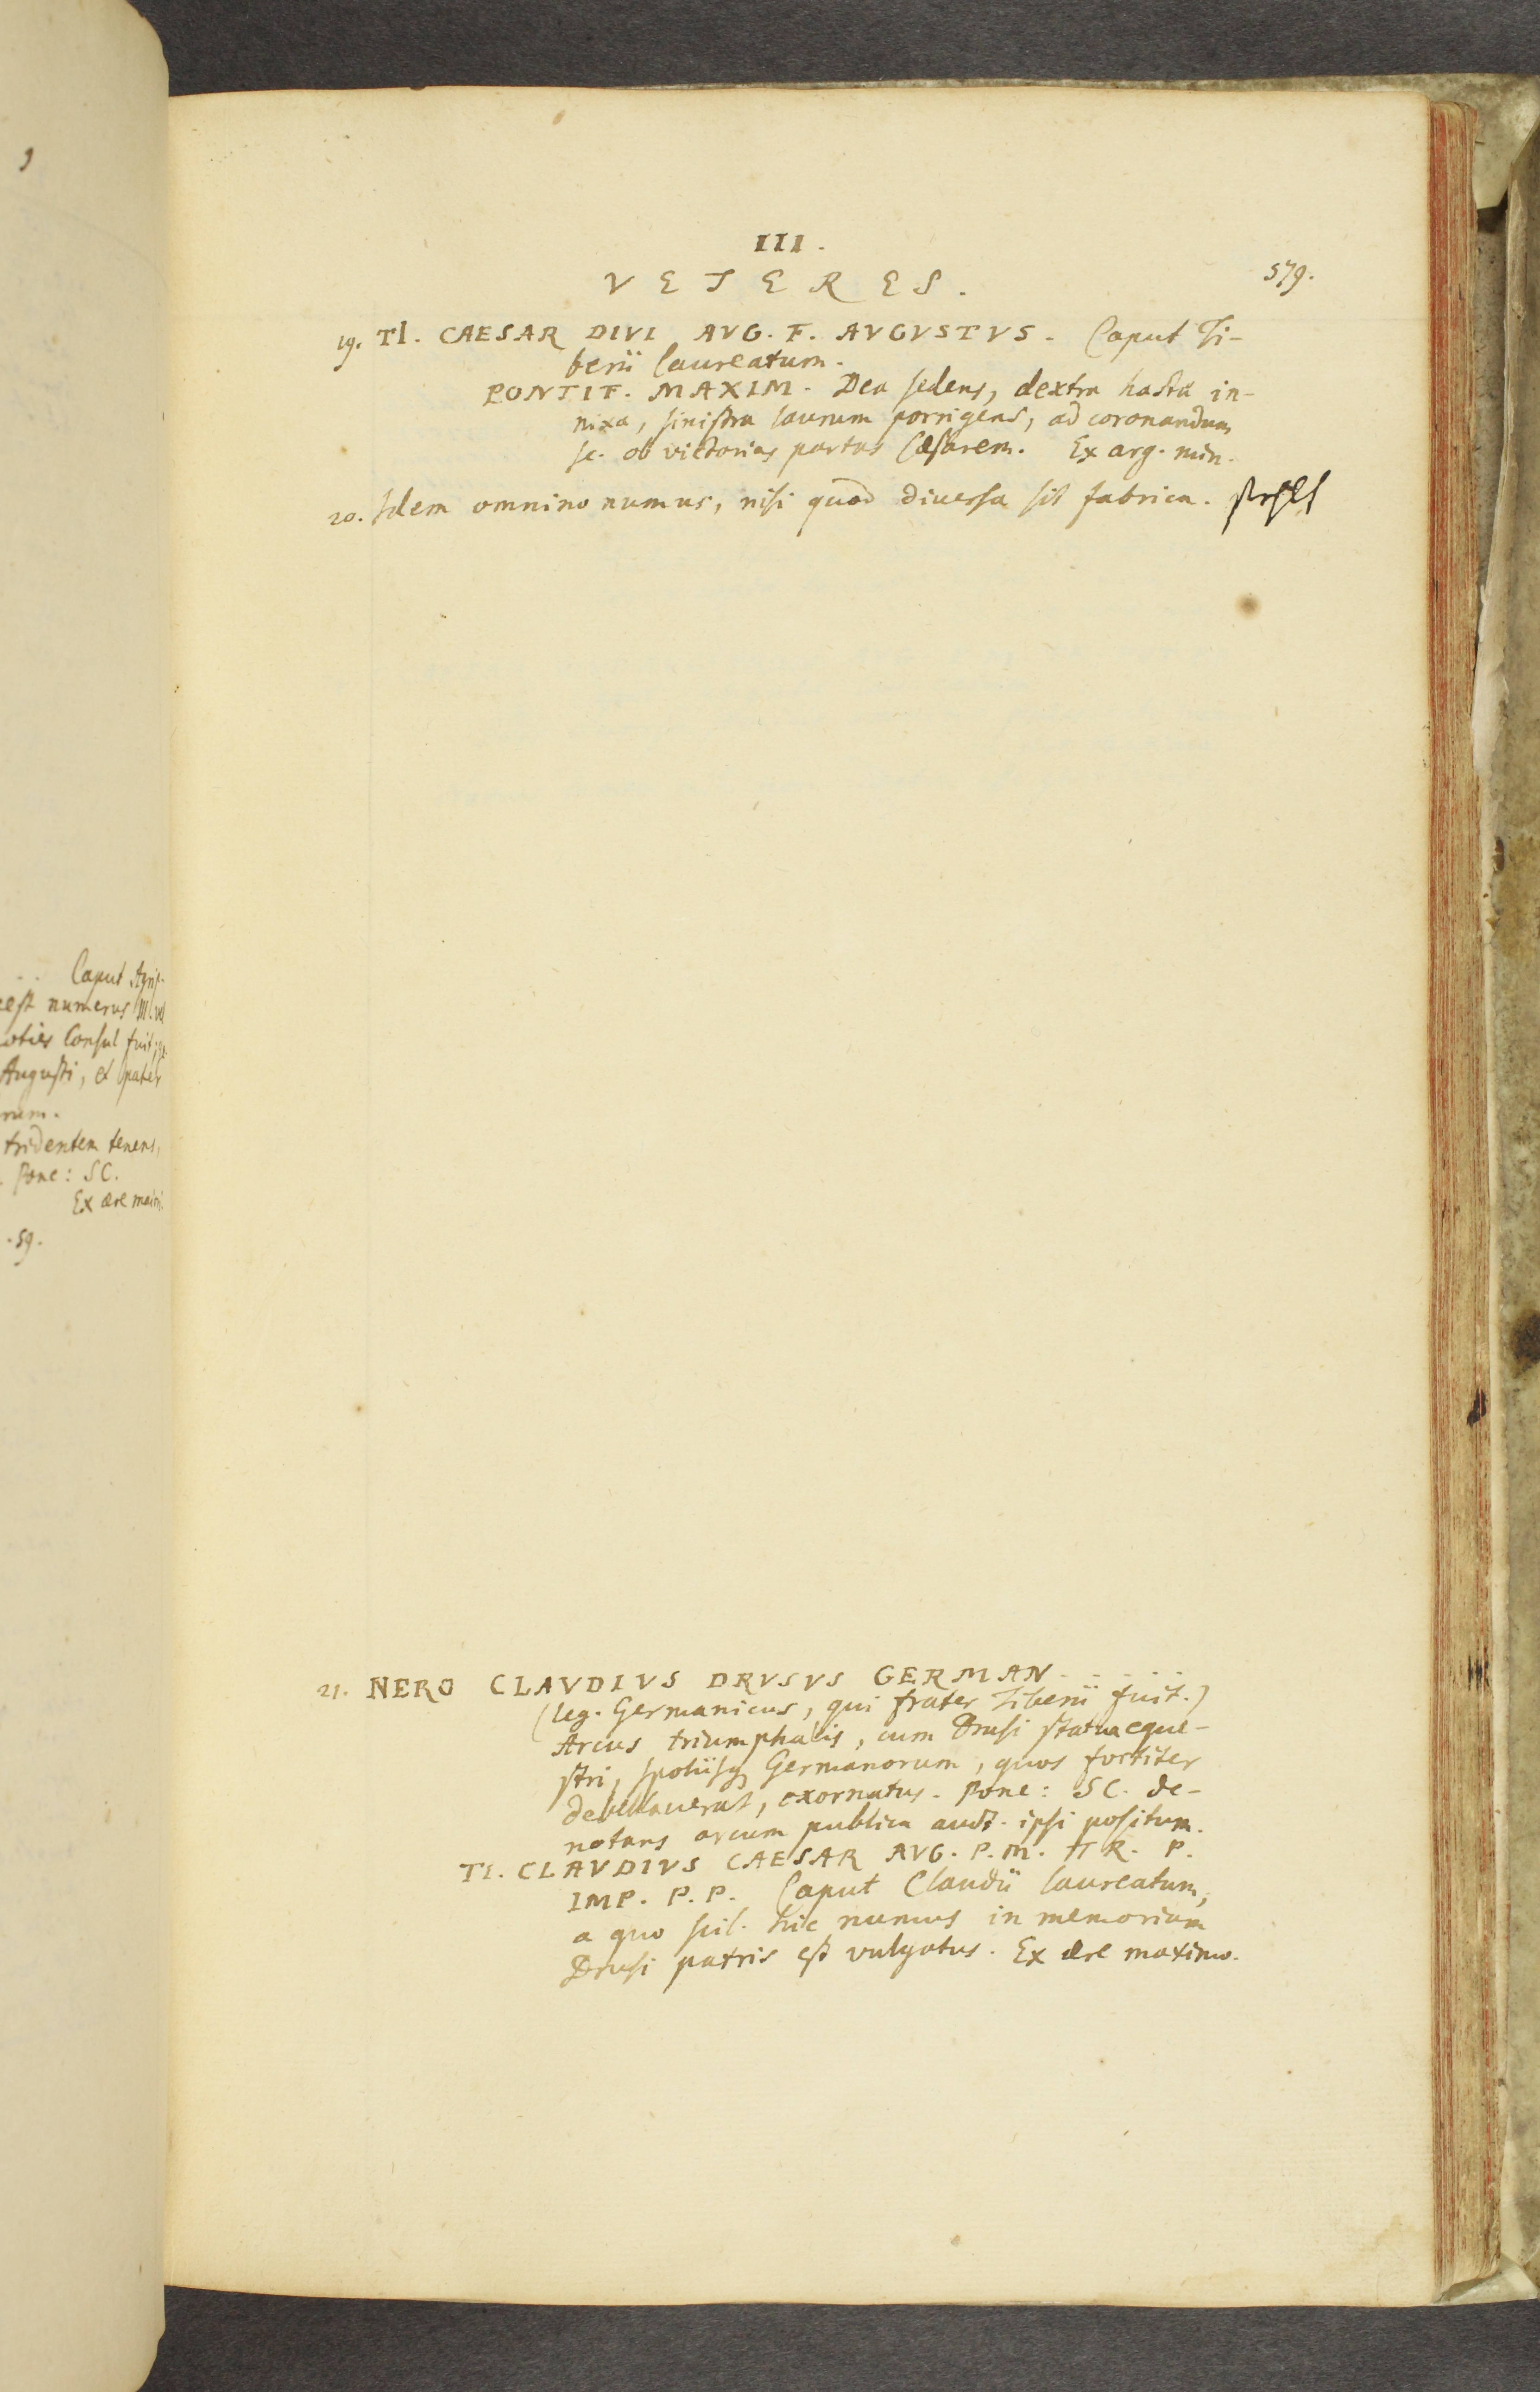 Caput Agrip-
est numerus III. vel
oties Consul fuit,
Augusti, et pater
rum.
tridentem tenens,
pone: SC.
Ex ære
.59.
III.
VETERES.
579.
19. TI. CAESAR DIVI AVG. F. AVGVSTVS. Caput Ti-
berii laureatum.
PONTIF. MAXIM. Dea sedens, dextra hastæ in-
nixa, sinistra laurum porrigens, ad coronandum
sc. ob victorias partas Cæsarem. Ex arg. min.
20. Idem omnino numus, nisi quod diversa sit fabrica.
21. NERO CLAVDIVS DRVSVS GERMAN. . . . .
(leg. Germanicus, qui frater Tiberii fuit.)
Arcus triumphalis, cum Drusi statua eque-
stri, spoliisq Germanorum, quos fortiter
debellaverat, exornatus. pone: SC. de-
notans arcum publica auct. ipsi positum.
TI. CLAVDIVS CAESAR AVG. P. M. TR. P.
IMP. P. P. Caput Claudii laureatum,
a quo scil. hic numus in memoriam
Drusi patris est vulgatus. Ex ære maximo.